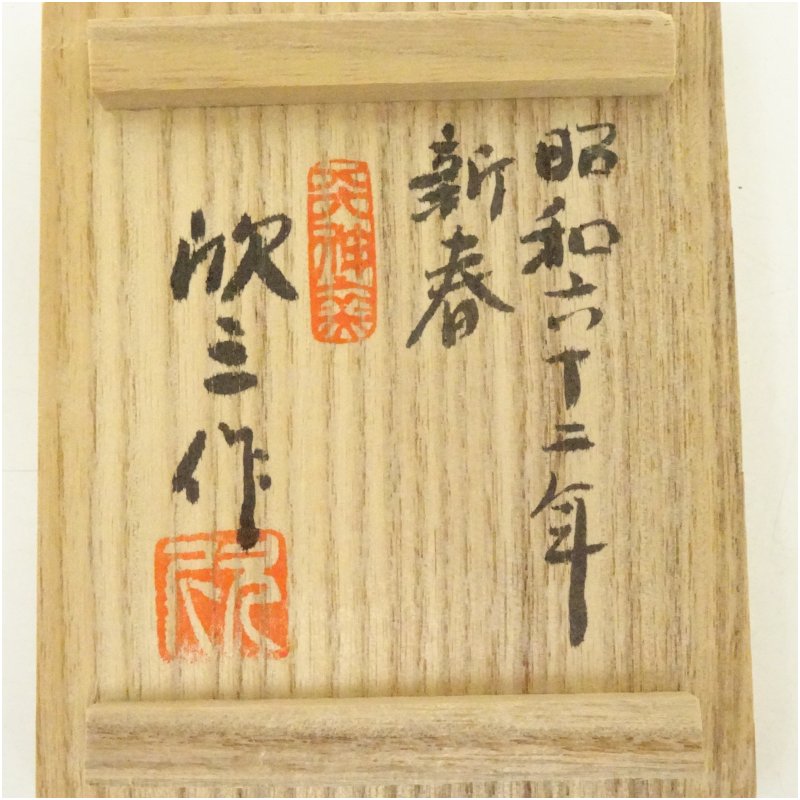 昭和六十二年
新春
欣三作